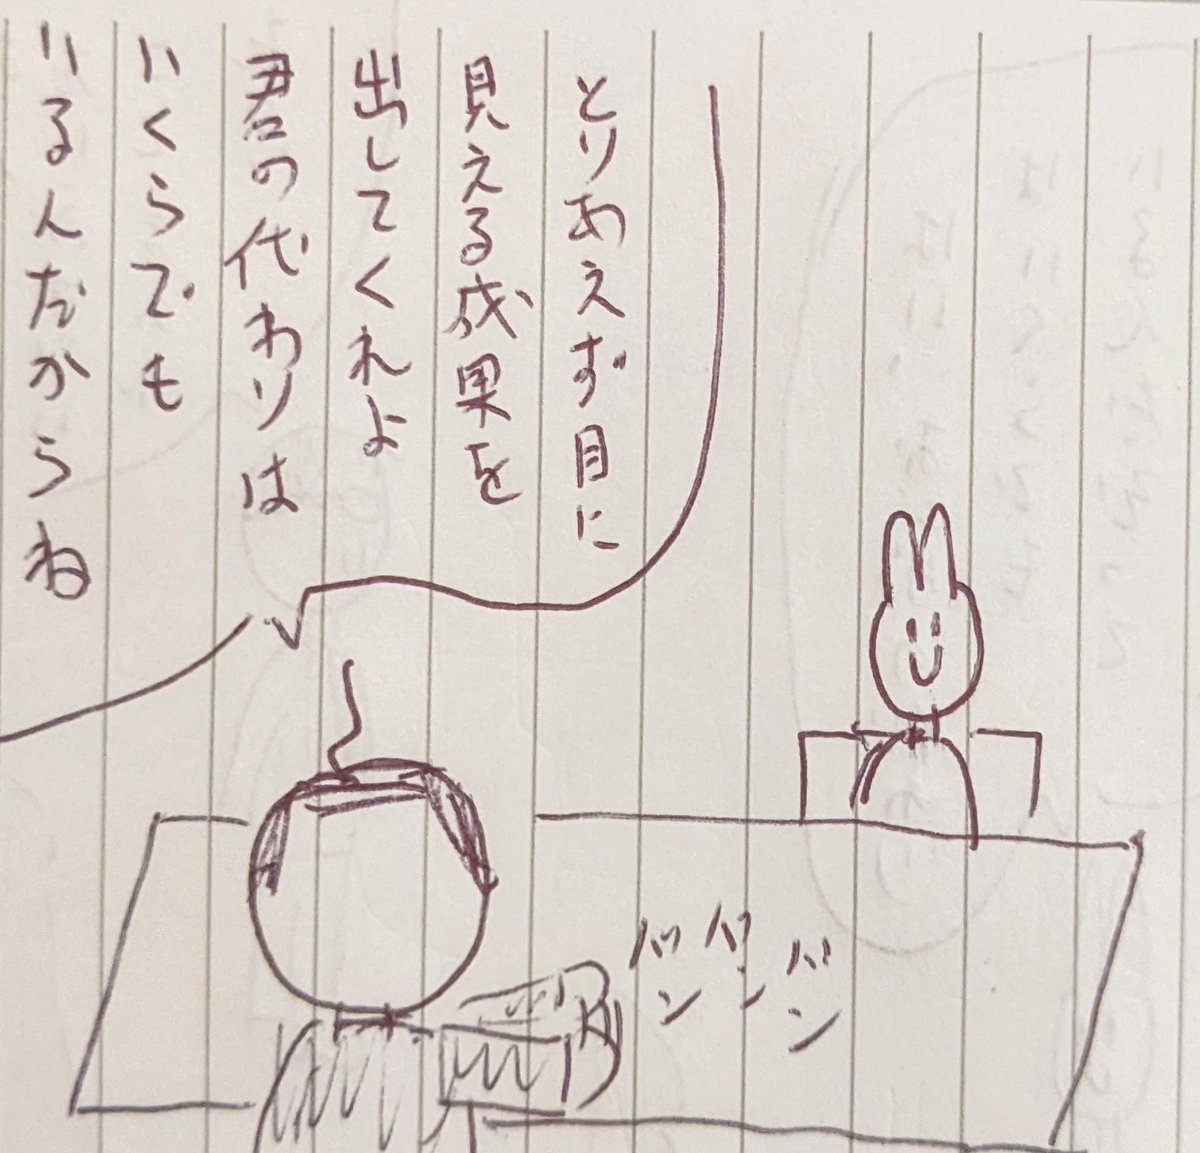 とりあえず目に
見える成果を
出してくれよ
君の代わりは
いくらでも
いるんだからね
バン
バン
バン